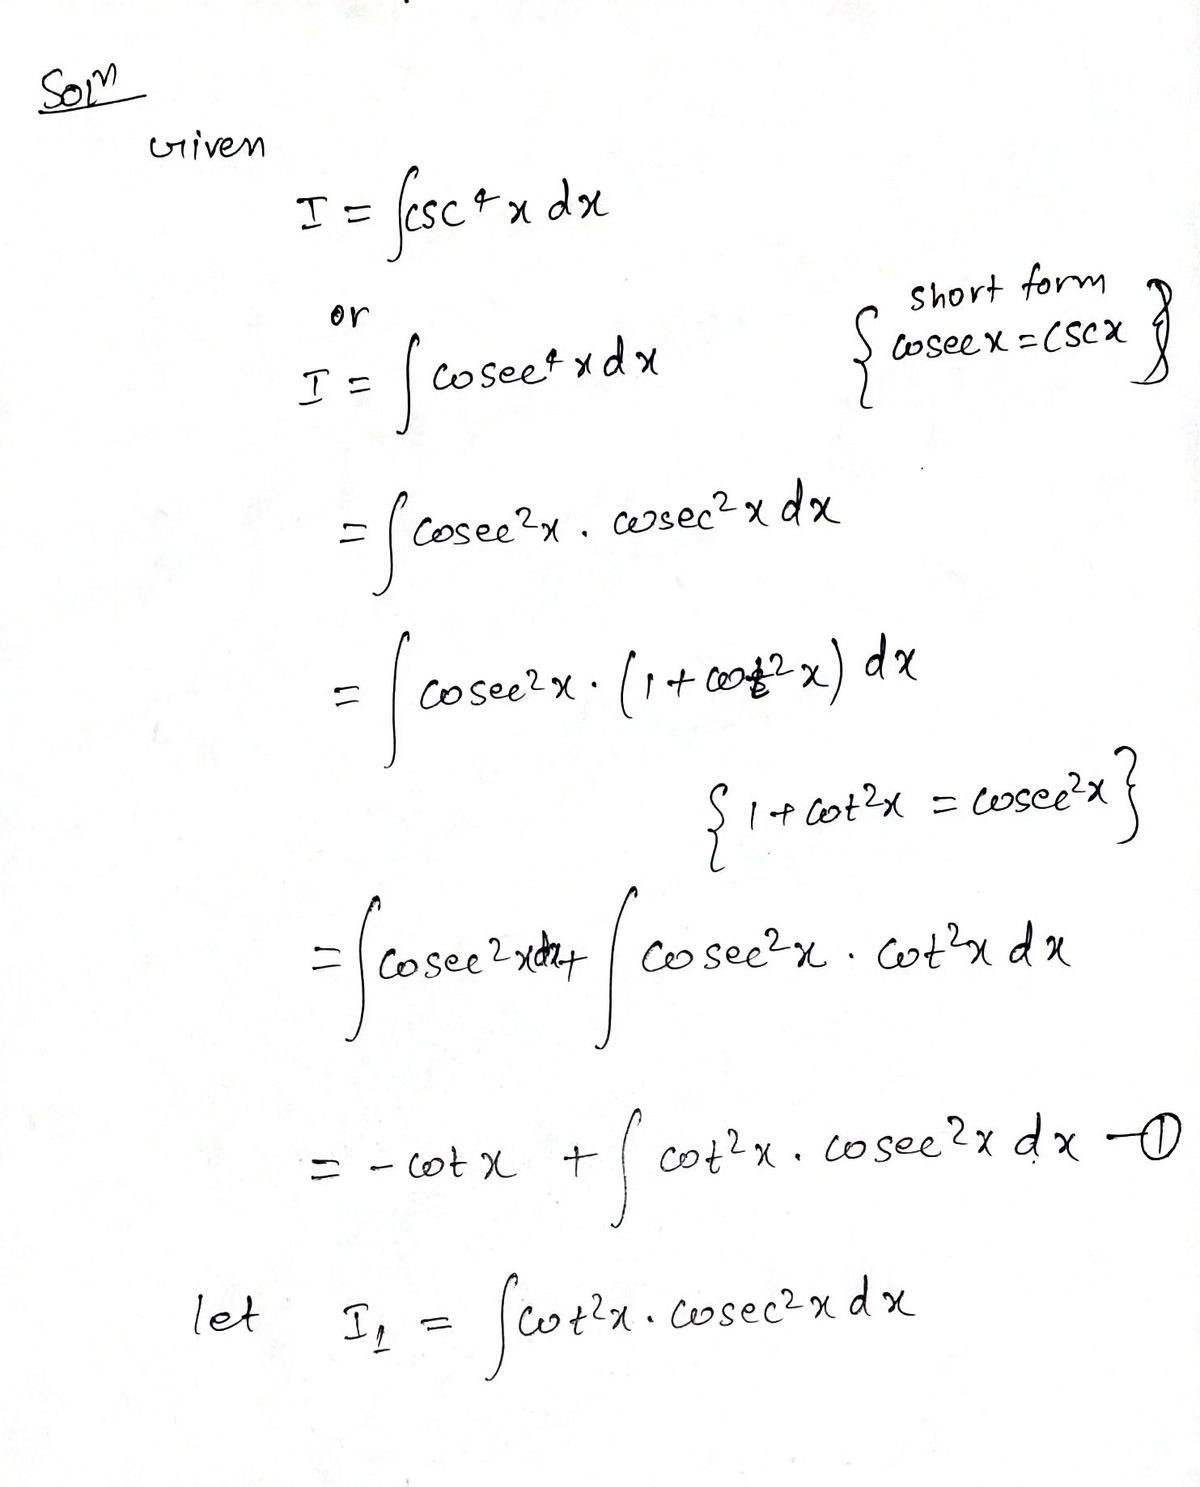 Soln
Given
I = ∫csc⁴ x dx
or
short form
I = ∫ cosec⁴ x dx { cosec x = csc x }
= ∫ cosec²x . cosec² x dx
= ∫ cosec²x . (1 + cot² x) dx
{ 1 + cot²x = cosec²x }
= ∫ cosec² x dx + ∫ cosec²x . cot²x dx
= - cot x + ∫ cot²x . cosec²x dx —①
let I₁ = ∫cot²x . cosec²x dx